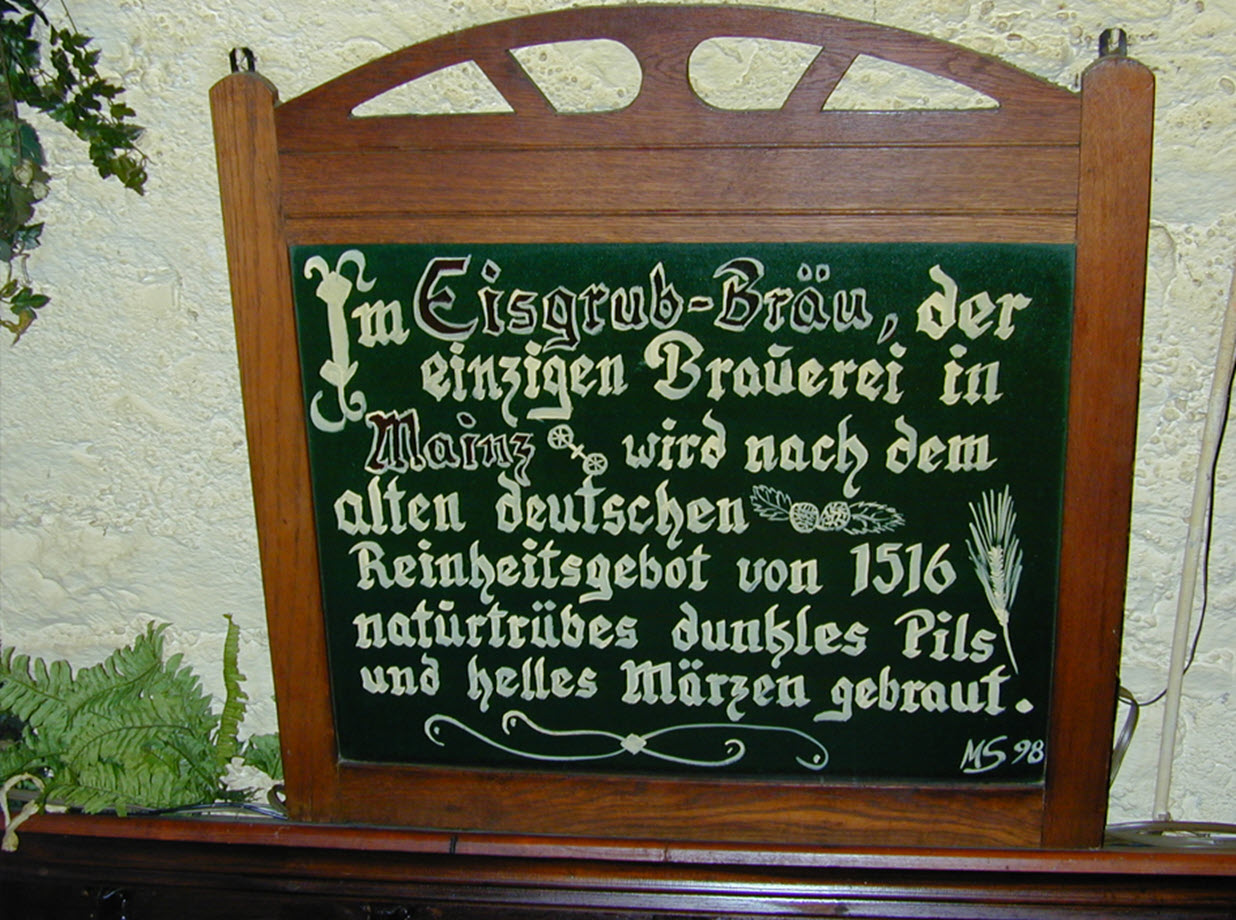 Im Eisgrub-Bräu, der
einzigen Brauerei in
Mainz wird nach dem
alten deutschen
Reinheitsgebot von 1516
natürtrübes dunkles Pils
und helles Märzen gebraut.
MS 98